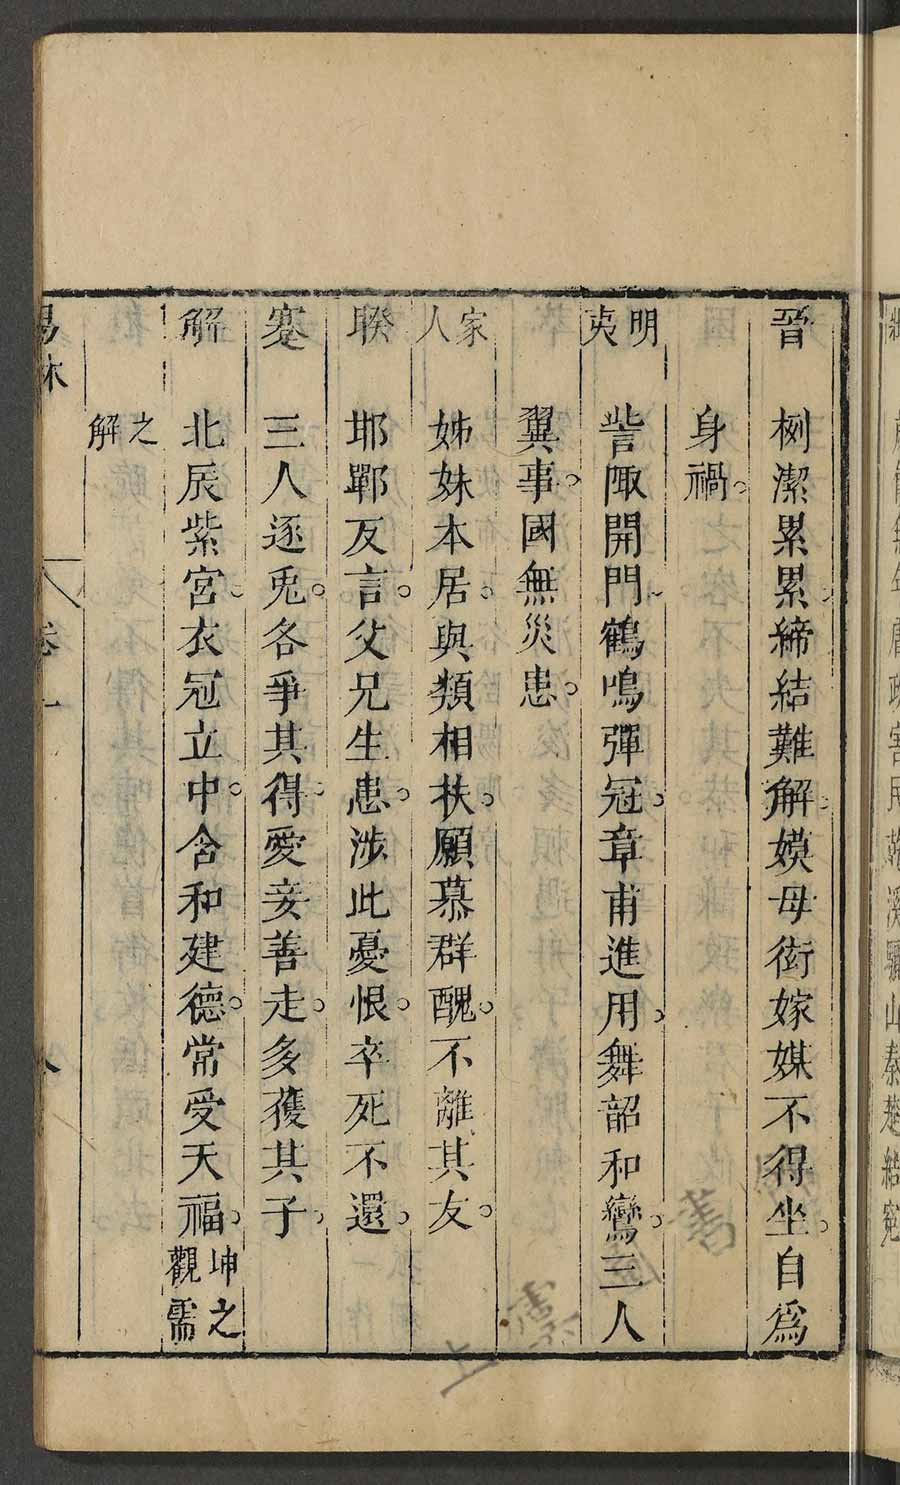 晉 桝潔累累締結難解嫫母衒嫁媒不得坐自爲
身禍
明夷 訾陬開門鶴鳴彈冠章甫進用舞韶和鸞三人
翼事國無災患
家人 姊妹本居與類相扶願慕群醜不離其友
睽 邯鄲反言父兄生患涉此憂恨卒死不還
蹇 三人逐兎各爭其得愛妾善走多獲其子
解 北辰紫宮衣冠立中含和建德常受天福坤之觀需
之解
易林 卷一